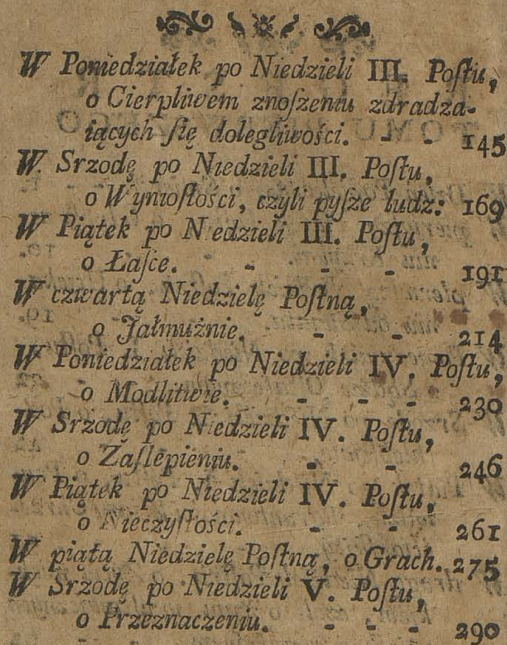 W Poniedziałek po Niedzieli III. Poſtu,
o Cierpliwem znoſzeniu zdradza-
iących ſię dolegliwości. - - 145
W. Srzodę po Niedzieli III. Poſtu,
o Wynioſłości, czyli pyſze ludz: 169
W Piątek po Niedzieli III. Poſtu,
o Łaſce. - - - 191
W czwartą Niedzielę Poſtną,
o Jałmużnie. - - - 214
W Poniedziałek po Niedzieli IV. Poſtu,
o Modlitwie. - - - 230
W Srzodę po Niedzieli IV. Poſtu,
o Zaſlepieniu. - - 246
W Piątek po Niedzieli IV. Poſtu,
o Nieczyſtości. - - 261
W piątą Niedzielę Poſtną, o Grach. 275
W Srzodę po Niedzieli V. Poſtu,
o Przeznaczeniu. - - - 290